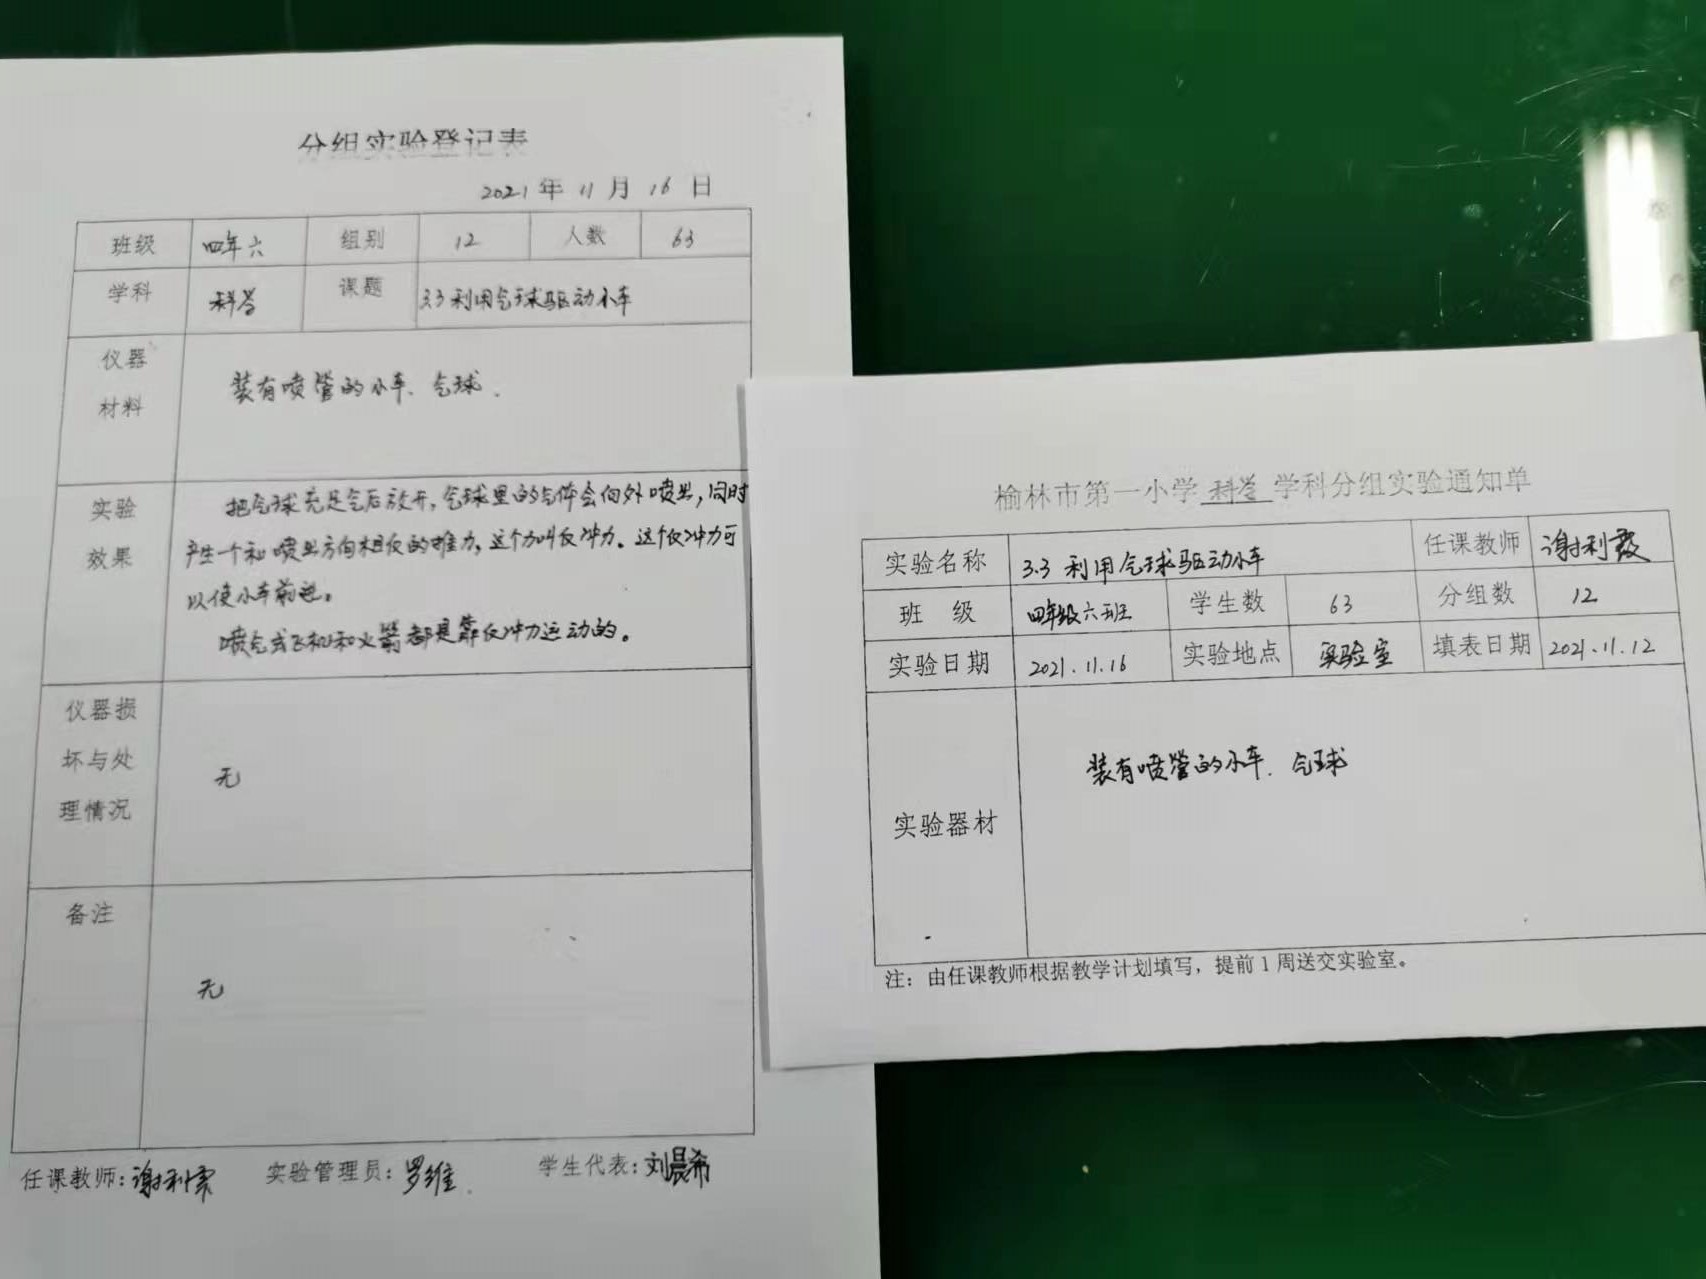 分组实验登记表
2021年11月16日
班级 四年六 组别 12 人数 63
学科 科学 课题 3.3利用气球驱动小车
仪器
材料
装有喷管的小车、气球.
实验
效果
把气球充足气后放开,气球里的气体会向外喷出,同时
产生一个和喷出方向相反的推力,这个力叫反冲力。这个反冲力可
以使小车前进。
喷气式飞机和火箭都是靠反冲力运动的。
仪器损
坏与处
理情况
无
备注
无
任课教师:谢利霞 实验管理员:罗维 学生代表:刘晨希
榆林市第一小学科学学科分组实验通知单
实验名称 3.3 利用气球驱动小车 任课教师 谢利霞
班 级 四年级六班 学生数 63 分组数 12
实验日期 2021.11.16 实验地点 实验室 填表日期 2021.11.12
实验器材 装有喷管的小车、气球
注:由任课教师根据教学计划填写,提前1周送交实验室。